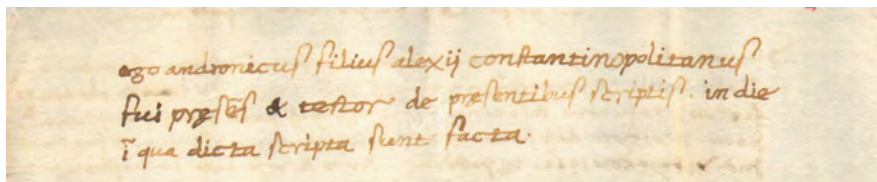 ego andronicus filius alexij constantinopolitanus
fui pręsēs & testor de pręsentibus scriptis. in die
ī qua dicta scripta sunt facta.